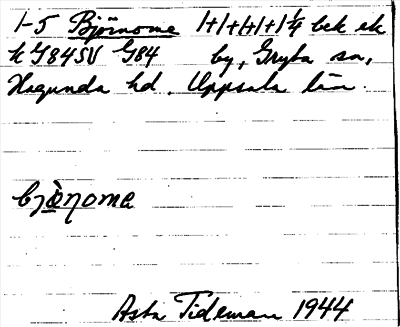 1-5 Björnome 1+1+1+1+1¼ bek ek
k G84SV G84 by, Gryta sn,
Hagunda hd. Uppsala län.
bjö̀ƞome
Asta Tideman 1944